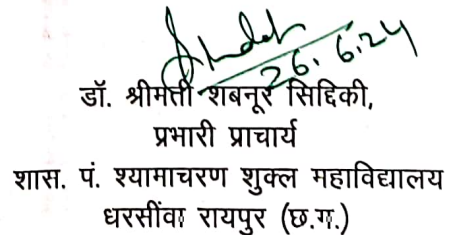 26.6.24
डॉ. श्रीमती शबनूर सिद्दिकी,
प्रभारी प्राचार्य
शास. पं. श्यामाचरण शुक्ल महाविद्यालय
धरसींवा रायपुर (छ.ग.)